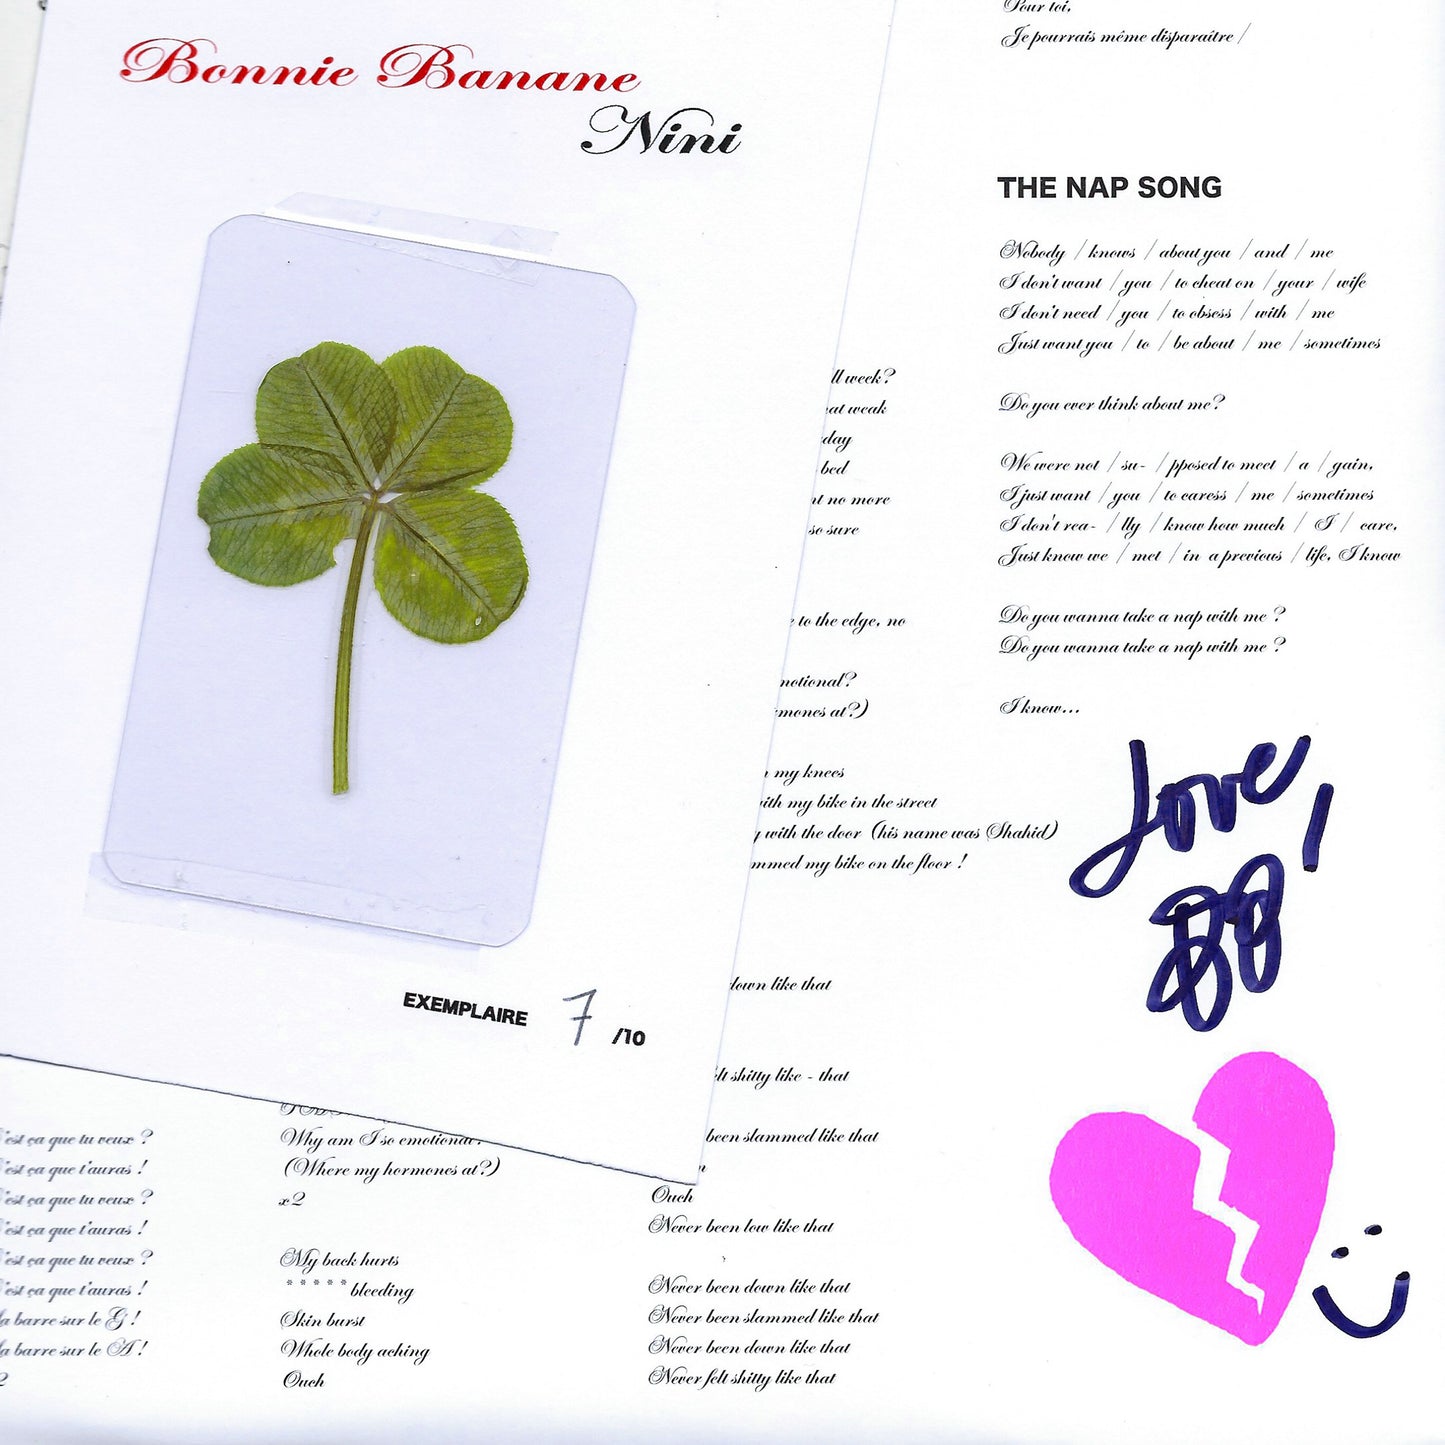 Bonnie Banane
Nini
EXEMPLAIRE 7 /10
'est ça que tu veux ?
'est ça que t'auras !
'est ça que tu veux ?
'est ça que t'auras !
'est ça que tu veux ?
'est ça que t'auras !
la barre sur le G !
la barre sur le A !
Why am I so emotional?
(Where my hormones at?)
x2
My back hurts
* * * * * bleeding
Skin burst
Whole body aching
Ouch
ll week?
at weak
day
bed
nt no more
so sure
e to the edge, no
motional?
mones at?)
n my knees
ith my bike in the street
y with the door (his name was Shahid)
mmed my bike on the floor !
down like that
lt shitty like - that
been slammed like that
Ouch
Never been low like that
Never been down like that
Never been slammed like that
Never been down like that
Never felt shitty like that
Pour toi,
Je pourrais même disparaître /
THE NAP SONG
Nobody / knows / about you / and / me
I don't want / you / to cheat on / your / wife
I don't need / you / to obsess / with / me
Just want you / to / be about / me / sometimes
Do you ever think about me?
We were not / su- / pposed to meet / a / gain,
I just want / you / to caress / me / sometimes
I don't rea- / lly / know how much / I / care,
Just know we / met / in a previous / life, I know
Do you wanna take a nap with me ?
Do you wanna take a nap with me ?
I know...
Love,
BB